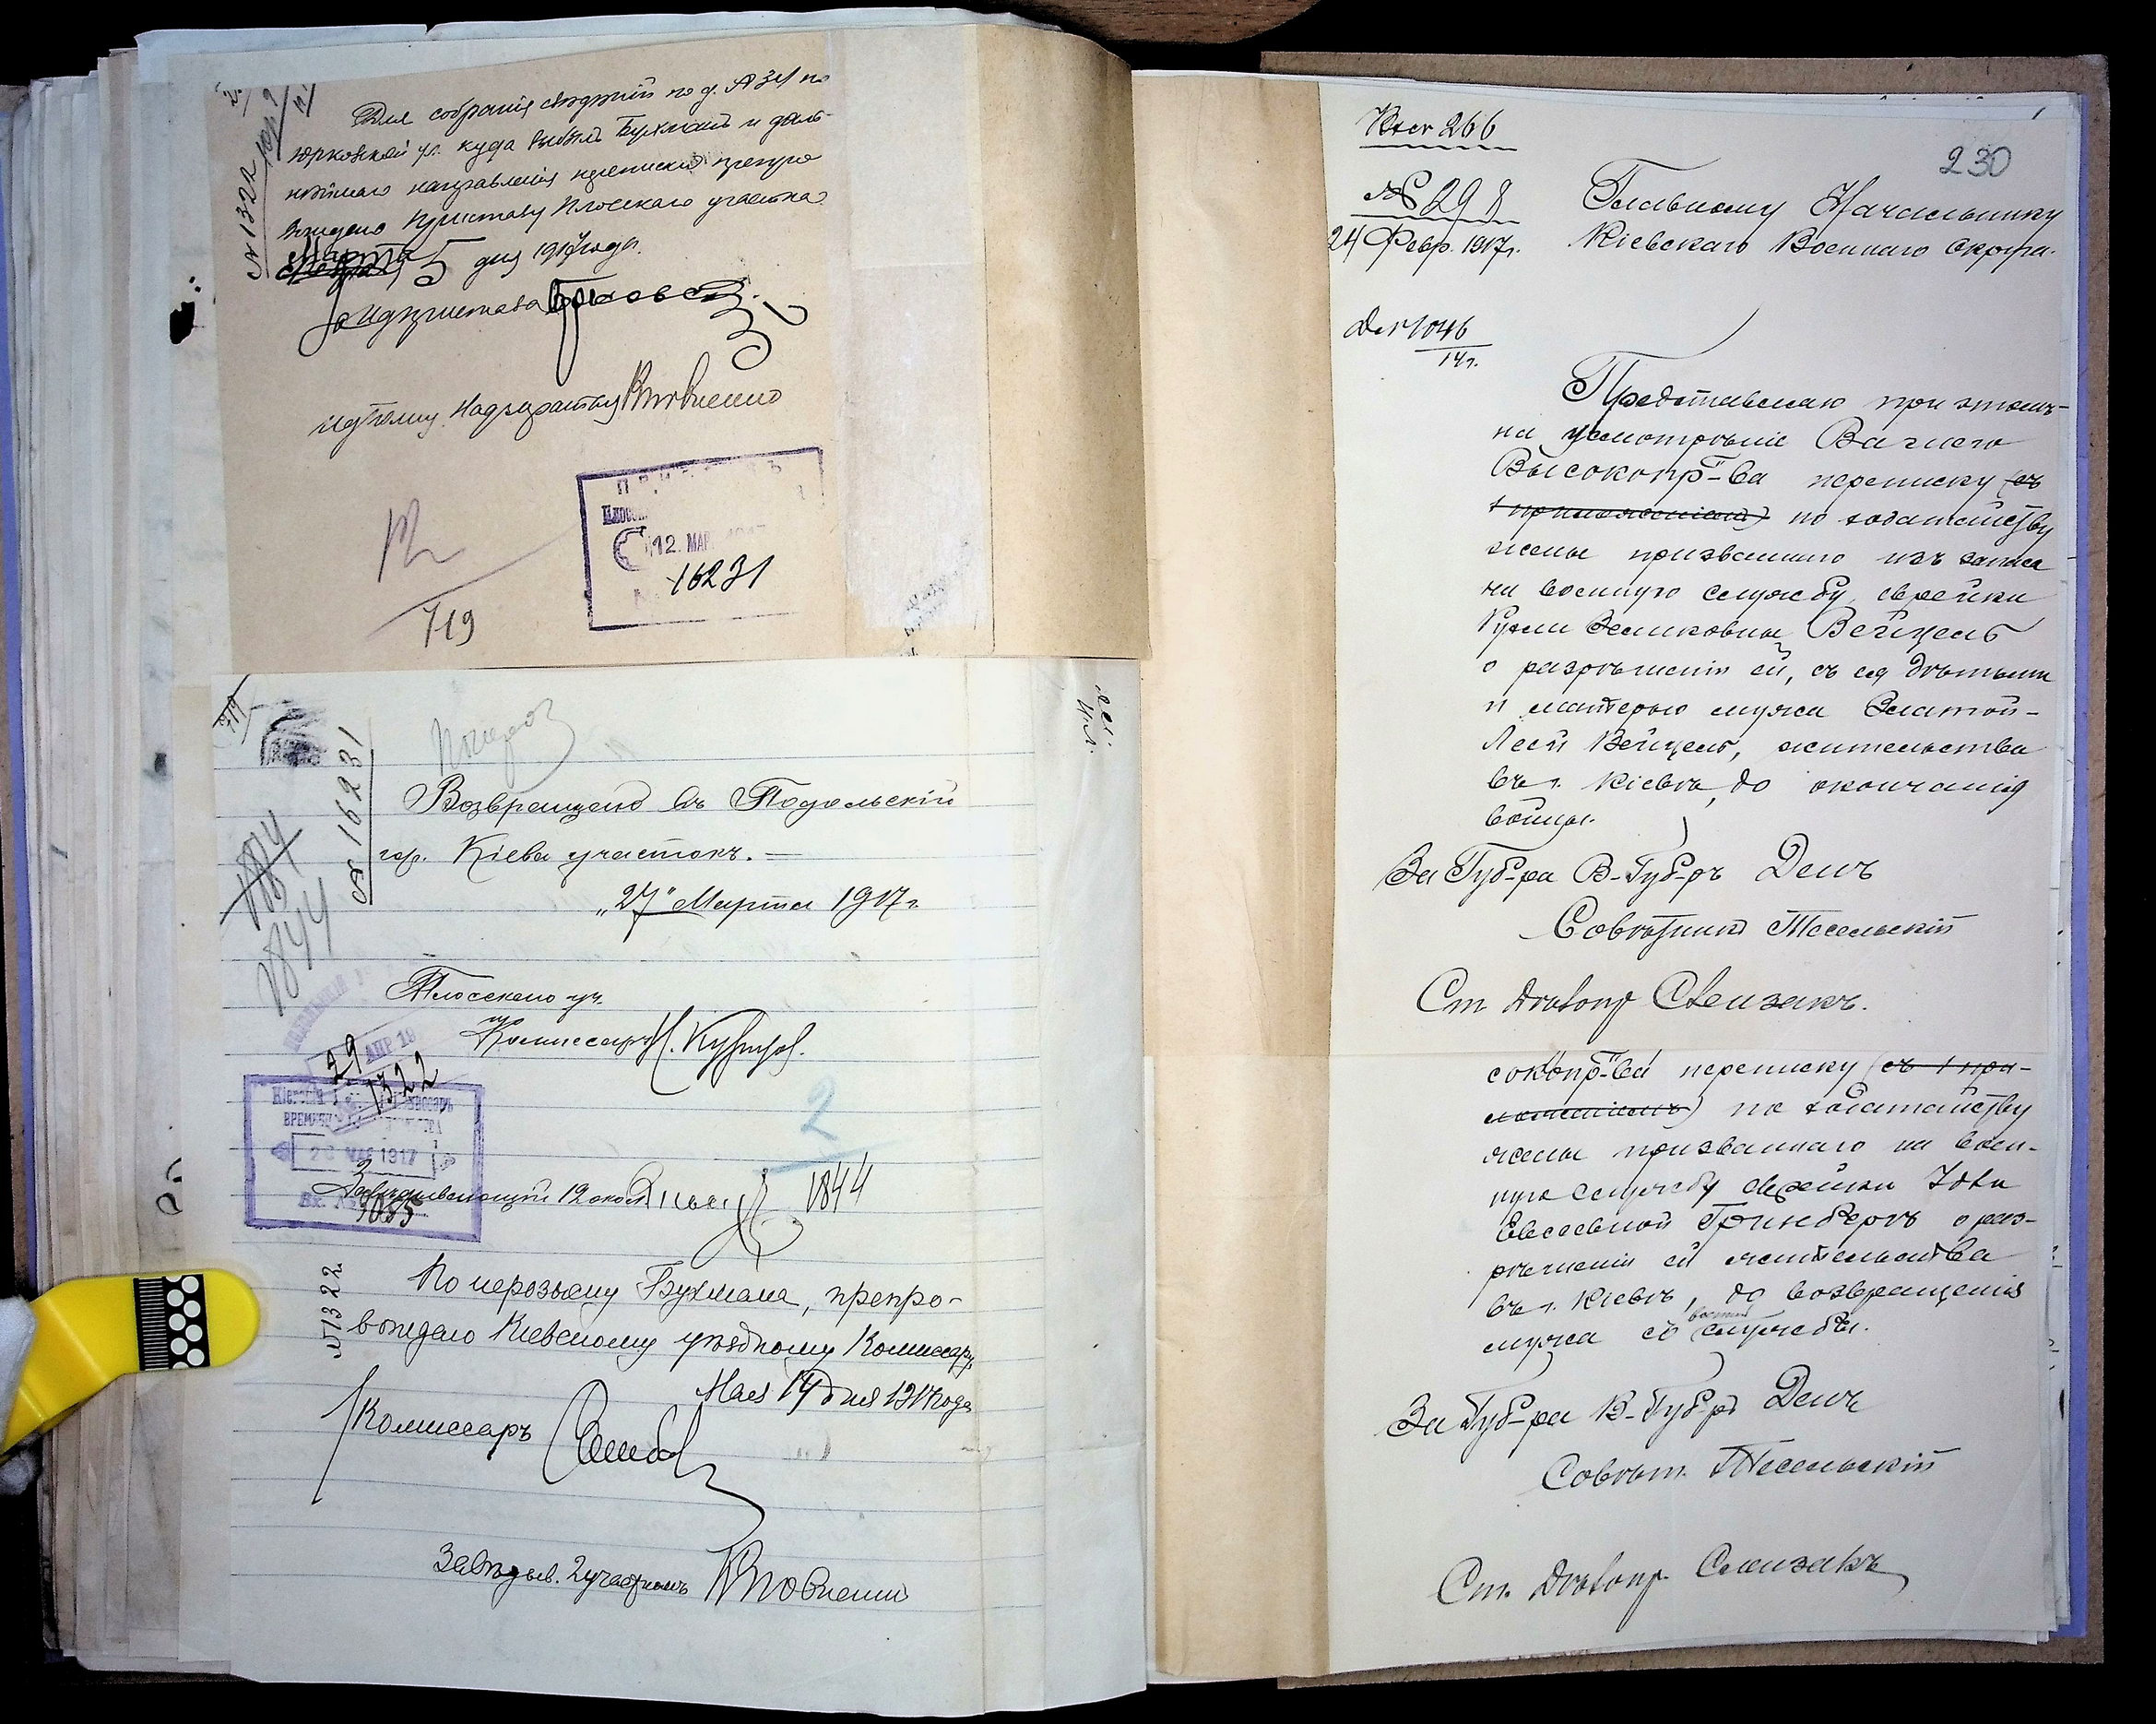 № 1322
Для собранія свѣдѣній по д. № 31 по
Юрковской ул. куда выбылъ Бухманъ и даль-
нѣйшаго направленія переписка препро
вождено Приставу Плосскаго участка
Марта 5 дня 1917 года.
За Пристава
Околоточному Надзирателю Вдовиченко
12. МАР. 1917
16231
719
719
№ 16231
1884
1844
Возвращено въ Подольскій
гор. Кіева участокъ. —
„27" Марта 1917 г.
Плосскаго уч.
Комиссаръ Н.
29 АПР 19
1322
Кіевскій
ВРЕМЕН
1917
Вх. №
9055
2
Завѣдывающій 12 окол.
1844
№ 1322
По мерозыску Бухмана, препро-
вождаю Кіевскому уѣздному Комиссару
Мая 14 дня 1917 года
Комиссаръ
Завѣдыв. 2 участкомъ Вдовиченко
230
266
№ 298
24 Февр. 1917 г.
Главному Начальнику
Кіевскаго Военнаго Округа.
Д. № 1046
14 г.
Представляю при этомъ
на усмотрѣніе Вашего
Высокопр-ва переписку (съ
1 приложеніемъ) по ходатайству
жены призваннаго изъ запаса
на военную службу, еврейки
Зеликовны Вейцель
о разрѣшеніи ей, съ ея дѣтьми
и матерью мужа Златой-
Леей Вейцель, жительства
въ г. Кіевѣ, до окончанія
войны.
За Губ-ра В-Губ-ръ Денъ
Совѣтникъ Тесельскій
Ст. Дѣлопр. Слизакъ.
сокопр-ва переписку (съ 1 при-
ложеніемъ) по ходатайству
жены призваннаго на воен-
ную службу еврейки Ховы
Евсеевной Гринбергъ о раз-
рѣшеніи ей жительства
въ г. Кіевѣ, до возвращенія
мужа съ военной службы.
За Губ-ра В-Губ-ръ Денъ
Совѣт. Тесельскій
Ст. Дѣлопр. Слизакъ